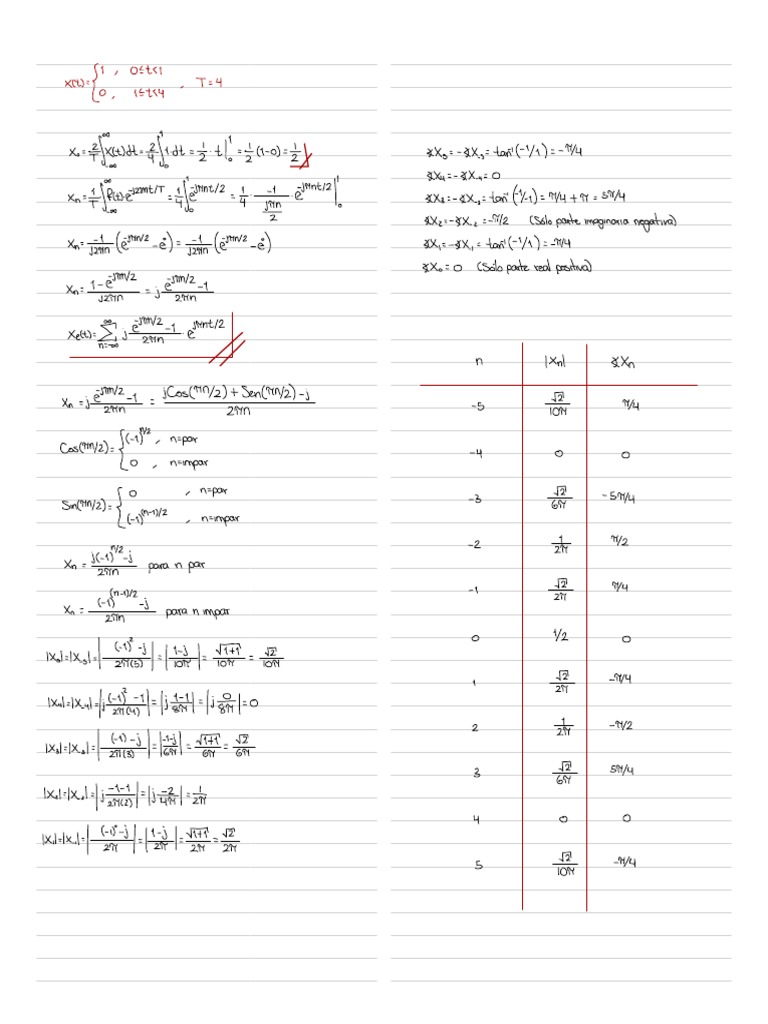 x(t)={1 , 0≤t<1
0 , 1≤t<4 , T=4
X₀=2/T ∫_{-∞}^{∞} x(t)dt=2/4 ∫_0^1 1·dt=1/2 · t|_0^1=1/2 (1-0)=1/2
Xn=1/T ∫_{-∞}^{∞} f(t)e^{-j2πnt/T}=1/4 ∫_0^1 e^{-jπnt/2}=1/4 · -1/(jπn/2) · e^{-jπnt/2}|_0^1
Xn=-1/j2πn (e^{-jπn/2}-e^0)=-1/j2πn (e^{-jπn/2}-e^0)
Xn=(1-e^{-jπn/2})/j2πn=j (e^{-jπn/2}-1)/2πn
Xe(t)=∑_{n=-∞}^{∞} j (e^{-jπn/2}-1)/2πn · e^{jπnt/2}
Xn=j (e^{-jπn/2}-1)/2πn = (jCos(πn/2)+Sen(πn/2)-j)/2πn
Cos(πn/2)={(-1)^{n/2} , n=par
0 , n=impar
Sin(πn/2)={0 , n=par
(-1)^{(n-1)/2} , n=impar
Xn=(j(-1)^{n/2}-j)/2πn para n par
Xn=((-1)^{(n-1)/2}-j)/2πn para n impar
|X₅|=|X₋₅|=|((-1)^2-j)/2π(5)|=|(1-j)/10π|=√(1+1)/10π=√2/10π
|X₄|=|X₋₄|=|j ((-1)^2-1)/2π(4)|=|j (1-1)/8π|=|j 0/8π|=0
|X₃|=|X₋₃|=|((-1)-j)/2π(3)|=|(-1-j)/6π|=√(1+1)/6π=√2/6π
|X₂|=|X₋₂|=|j (-1-1)/2π(2)|=|j -2/4π|=1/2π
|X₁|=|X₋₁|=|((-1)^0-j)/2π|=|(1-j)/2π|=√(1+1)/2π=√2/2π
∢X₅=-∢X₋₅=tan⁻¹(-1/1)=-π/4
∢X₄=-∢X₋₄=0
∢X₃=-∢X₋₃=tan⁻¹(-1/-1)=π/4+π=5π/4
∢X₂=-∢X₋₂=-π/2 (Sólo parte imaginaria negativa)
∢X₁=-∢X₋₁=tan⁻¹(-1/1)=-π/4
∢X₀=0 (Sólo parte real positiva)
n |Xn| ∢Xn
-5 √2/10π π/4
-4 0 0
-3 √2/6π -5π/4
-2 1/2π π/2
-1 √2/2π π/4
0 1/2 0
1 √2/2π -π/4
2 1/2π -π/2
3 √2/6π 5π/4
4 0 0
5 √2/10π -π/4